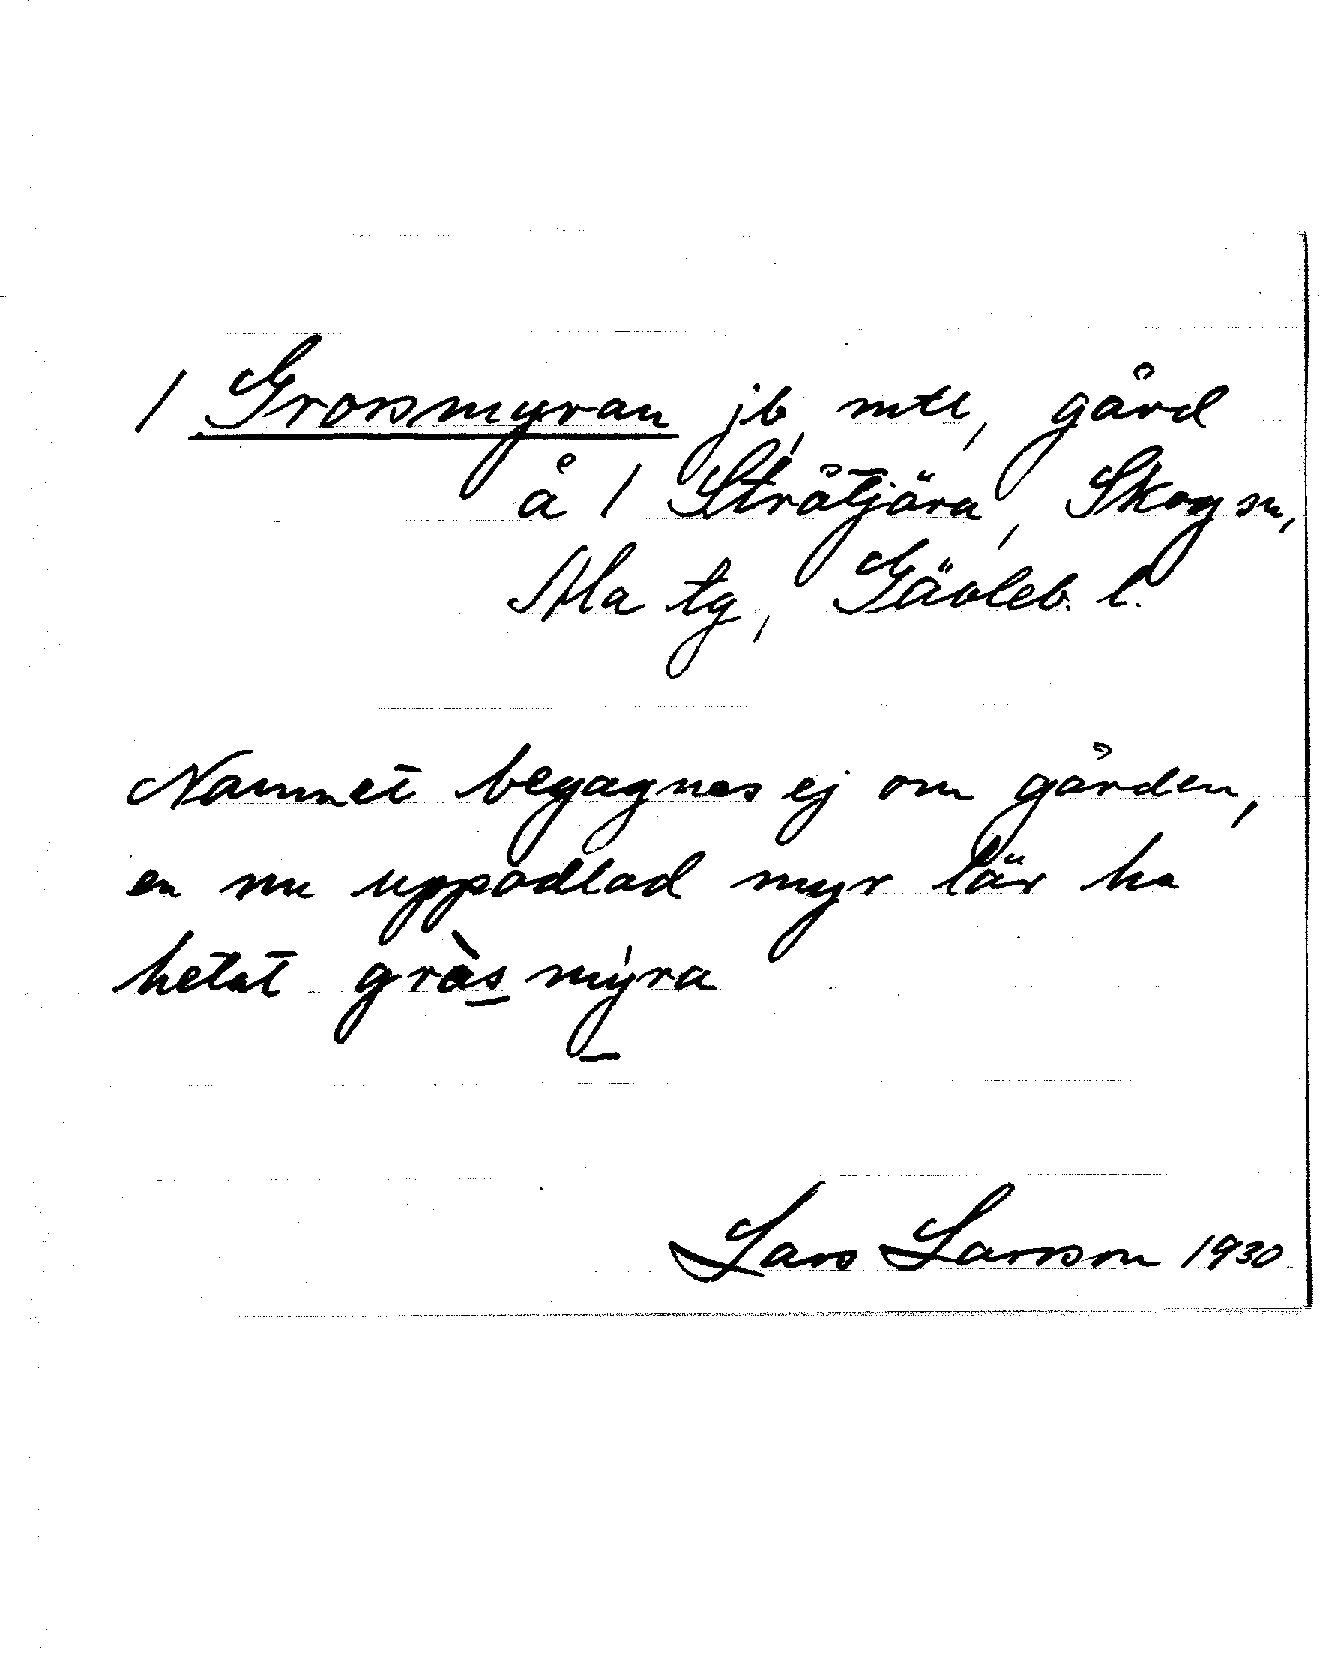 1 Grossmyran jb, mtl, gård
å 1 Stråtjära, Skog sn,
Ala tg, Gävleb. l.
Namnet begagnas ej om gården,
en nu uppodlad myr lär ha
hetat gràsmýra
Lars Larsson 1930